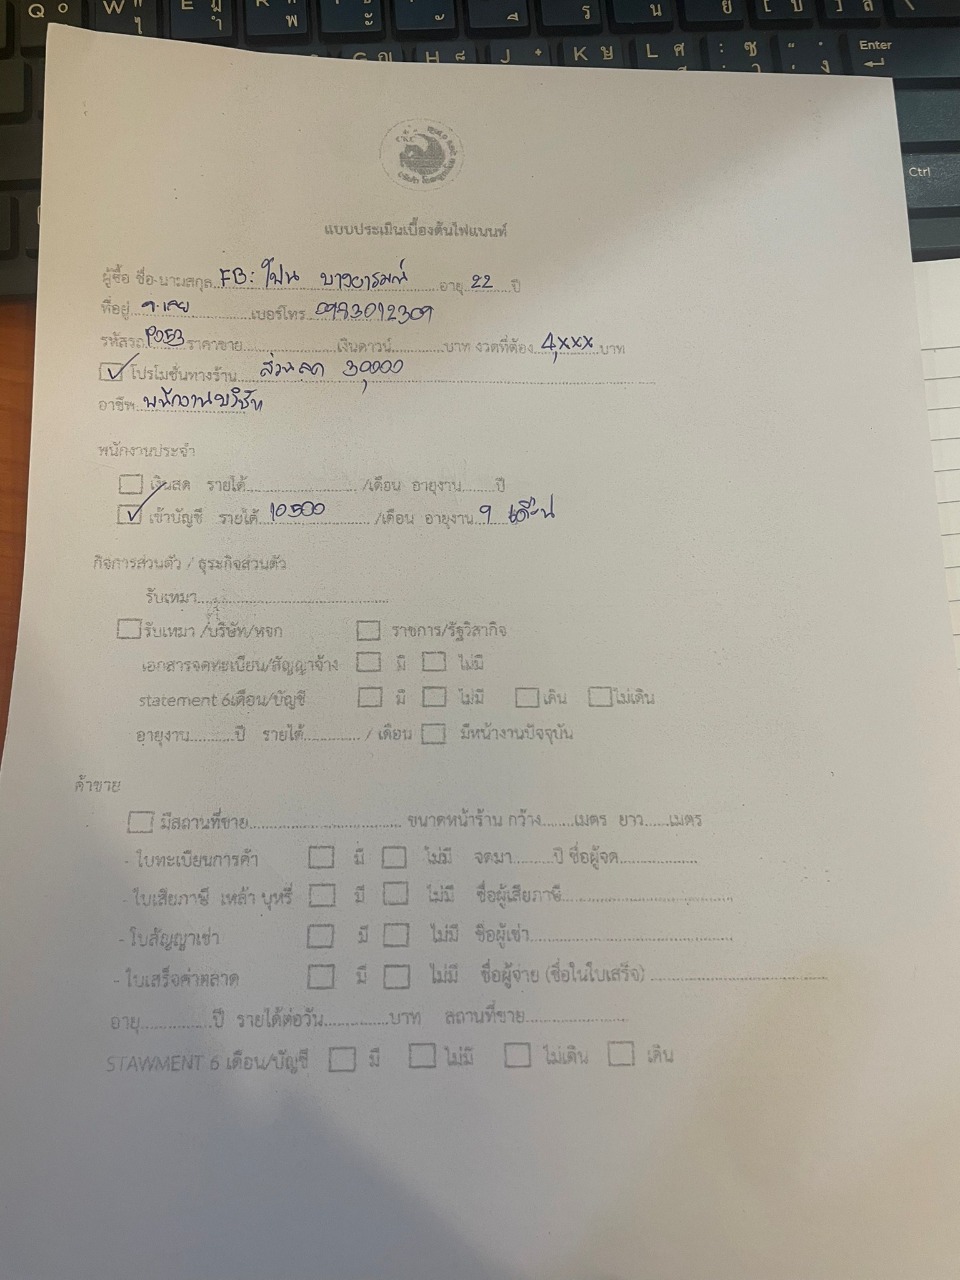 แบบประเมินเบื้องต้นไฟแนนท์
ผู้ซื้อ ชื่อ-นามสกุล FB: โฟน บางอารมณ์ อายุ 22 ปี
ที่อยู่ จ.เลย เบอร์โทร 0983012309
รหัสรถ P053 ราคาขาย เงินดาวน์ บาท งวดที่ต้อง 4,xxx บาท
โปรโมชั่นทางร้าน ส่วนลด 30,000
อาชีพ พนักงานบริษัท
พนักงานประจำ
เงินสด รายได้ /เดือน อายุงาน ปี
เข้าบัญชี รายได้ 10500 /เดือน อายุงาน 9 เดือน
กิจการส่วนตัว / ธุระกิจส่วนตัว
รับเหมา
รับเหมา /บริษัท/หจก ราชการ/รัฐวิสากิจ
เอกสารจดทะเบียน/สัญญาจ้าง มี ไม่มี
statement 6เดือน/บัญชี มี ไม่มี เดิน ไม่เดิน
อายุงาน ปี รายได้ / เดือน มีหน้างานปัจจุบัน
ค้าขาย
มีสถานที่ขาย ขนาดหน้าร้าน กว้าง เมตร ยาว เมตร
- ใบทะเบียนการค้า มี ไม่มี จดมา ปี ชื่อผู้จด
- ใบเสียภาษี เหล้า บุหรี่ มี ไม่มี ชื่อผู้เสียภาษี
- ใบสัญญาเช่า มี ไม่มี ชื่อผู้เช่า
- ใบเสร็จค่าตลาด มี ไม่มี ชื่อผู้จ่าย (ชื่อในใบเสร็จ)
อายุ ปี รายได้ต่อวัน บาท สถานที่ขาย
STAWMENT 6 เดือน/บัญชี มี ไม่มี ไม่เดิน เดิน